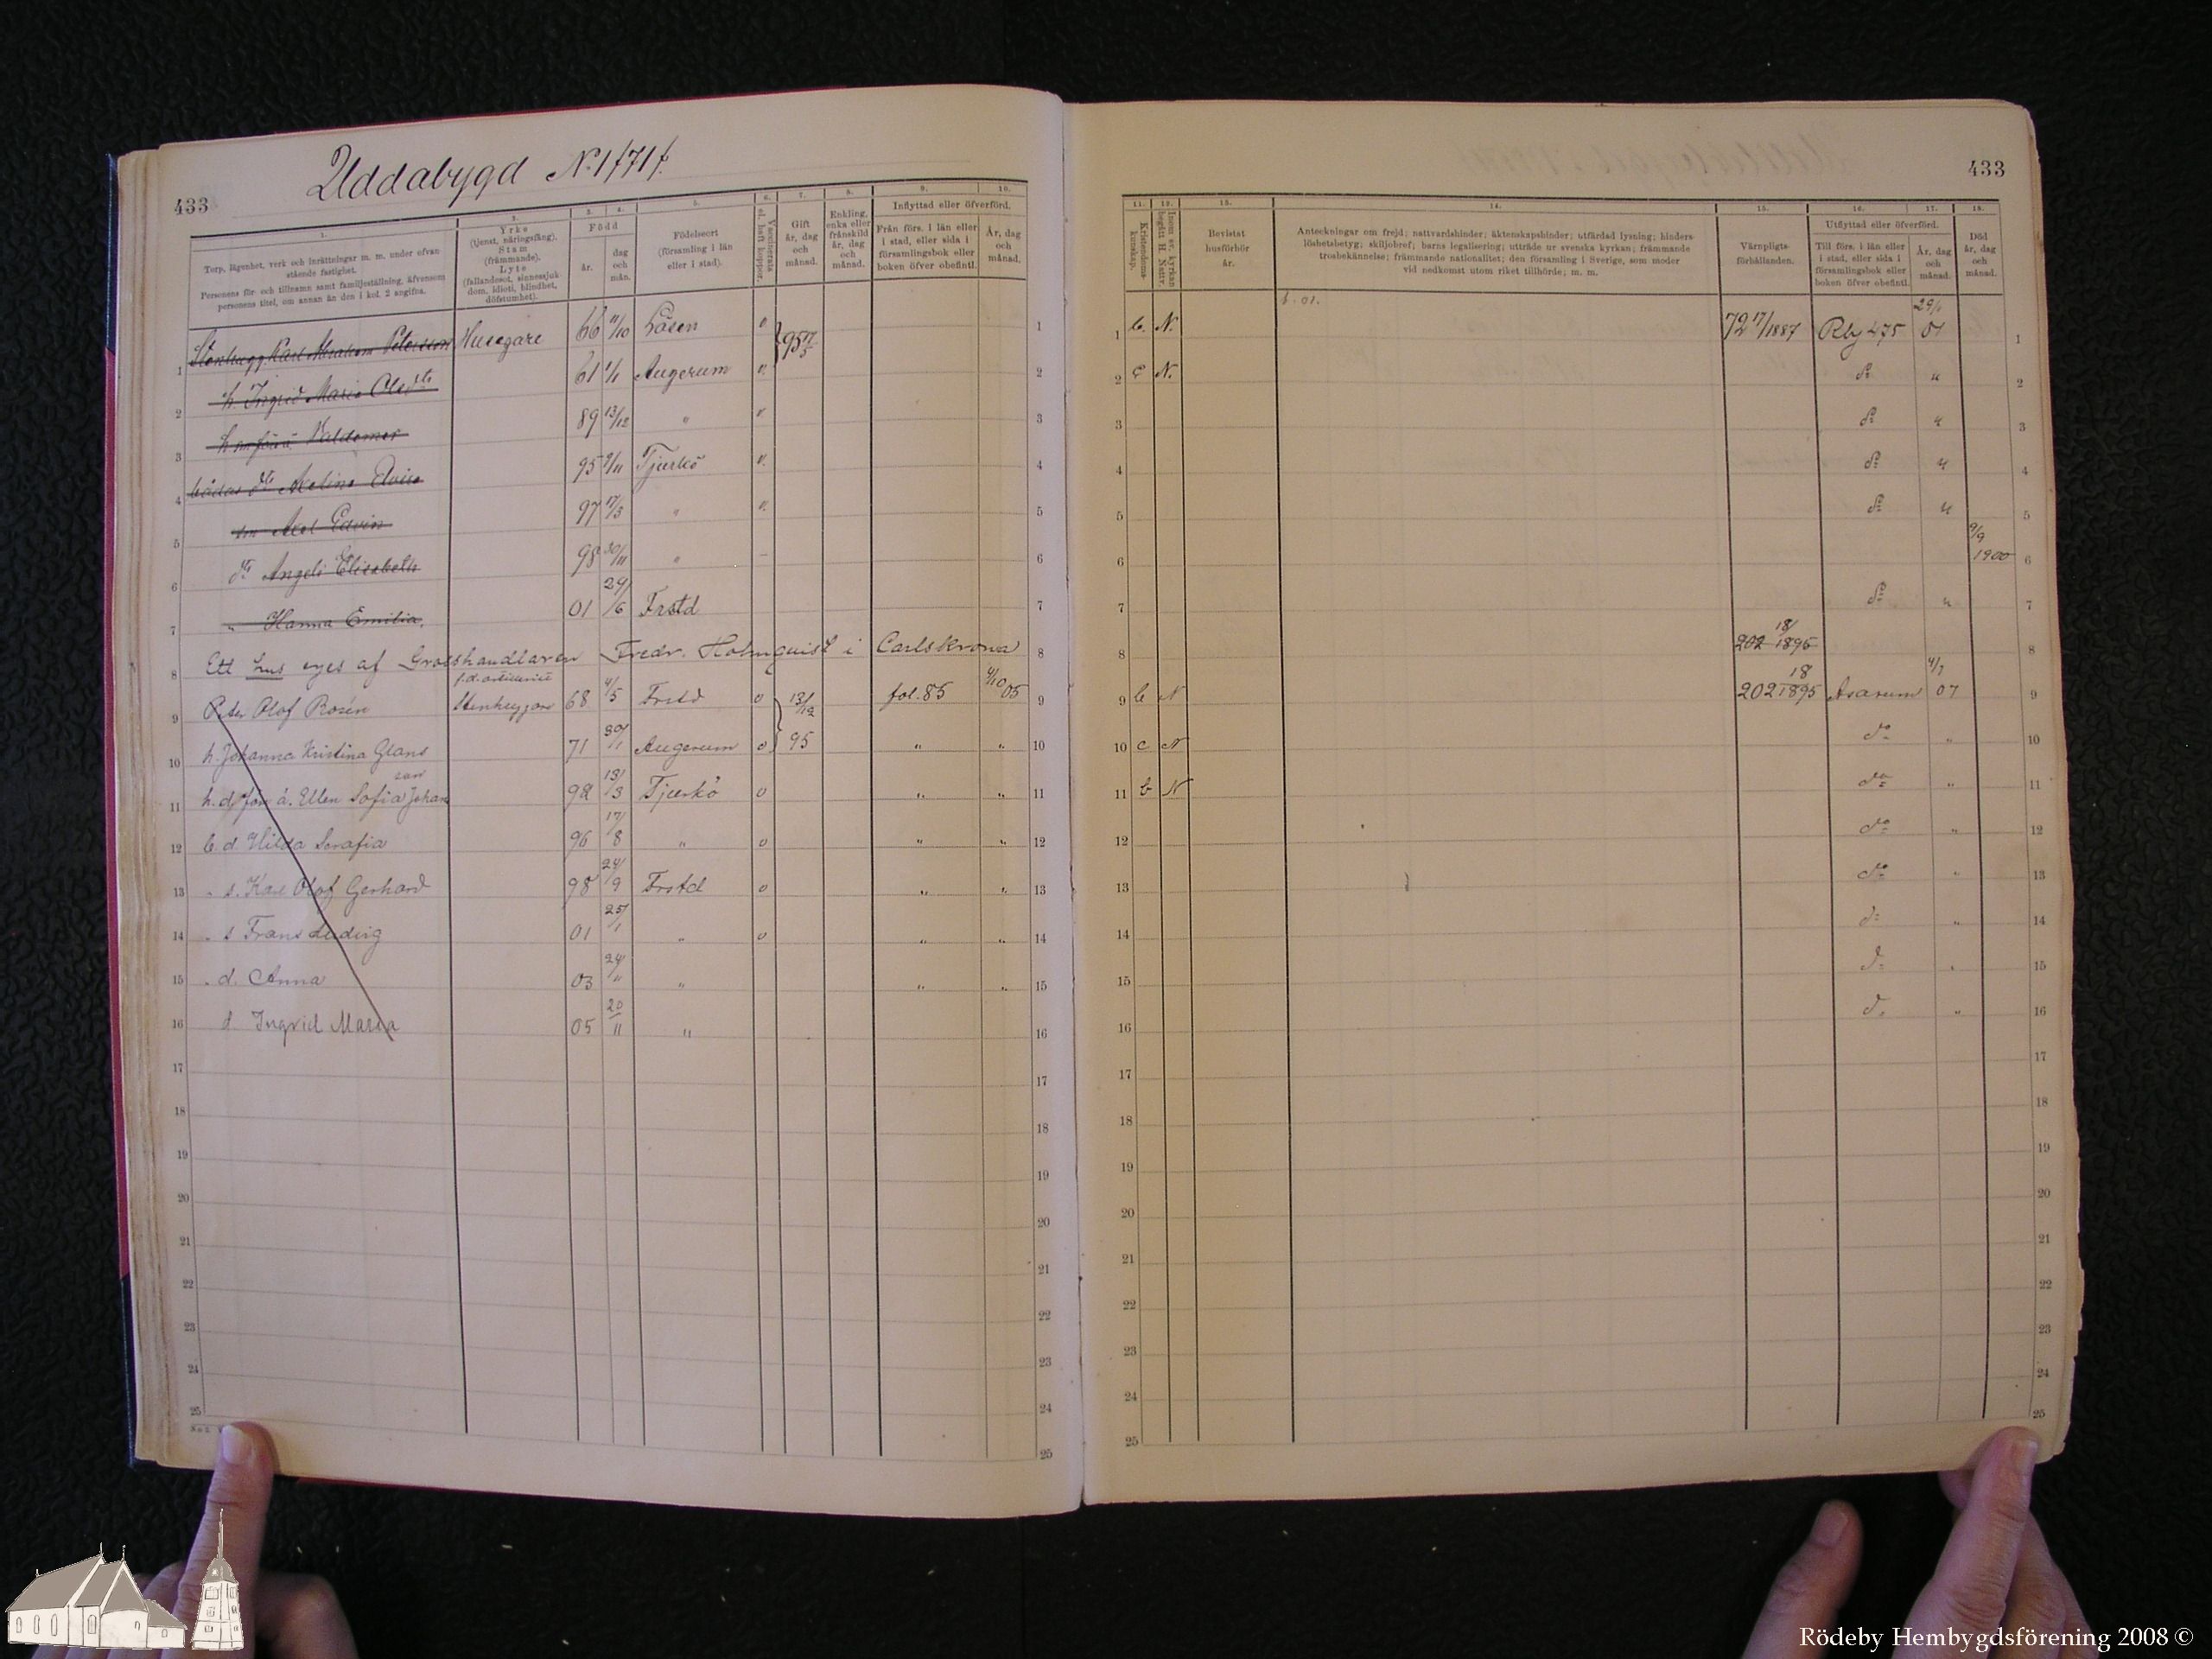 Uddabygd N. 1 f 71 f.
433
433
1. 2. 3. 4. 5. 6. 7. 8. 9. 10.
Torp, lägenhet, verk och inrättningar m. m. under ofvan stående fastighet.
Personens för- och tillnamn samt familjeställning, äfvensom personens titel, om annan än den i kol. 2 angifna.
Yrke (tjenst, näringsfång). Stam (främmande). Lyte (fallandesot, sinnessjukdom, idioti, blindhet, döfstumhet).
Född
år.
dag och mån.
Födelseort (församling i län eller i stad).
Vaccinerats el. haft koppor.
Gift år, dag och månad.
Enkling, enka eller frånskild år, dag och månad.
Inflyttad eller öfverförd.
Från förs. i län eller i stad, eller sida i församlingsbok eller boken öfver obefintl.
År, dag och månad.
11. 12. 13. 14. 15. 16. 17. 18.
Kristendomskunskap.
Inom sv. kyrkan begått H. Nattv.
Bevistat husförhör år.
Anteckningar om frejd; nattvardshinder; äktenskapshinder; utfärdad lysning; hinderslöshetsbetyg; skiljobref; barns legalisering; utträde ur svenska kyrkan; främmande trosbekännelse; främmande nationalitet; den församling i Sverige, som moder vid nedkomst utom riket tillhörde; m. m.
Värnpligtsförhållanden.
Utflyttad eller öfverförd.
Till förs. i län eller i stad, eller sida i församlingsbok eller boken öfver obefintl.
År, dag och månad.
Död år, dag och månad.
1 Stenhugg Karl Abraham Petersson Husegare 66 11/10 Lösen 95 b. N. 72 17/1887 Rby 475 29/1 01
2 h. Ingrid Maria Olsdtr 61 1/1 Augerum c N. do "
3 Valdemar 89 13/12 " do "
4 bådas dtr Axelina Elvira 95 9/11 Tjurkö do "
5 son Axel Edvin 97 17/3 " do "
6 dtr Angeli Elisabeth 98 30/11 " 9/9 1900
7 " Hanna Emilia. 01 24/6 Frstd do "
8 Ett hus eges af Grosshandlaren Fredr. Holmquist i Carlskrona 202 18/1895
9 Peter Olof Rosén Stenhuggare 68 4/5 Frstd 13/12 fol. 85 4/10 05 b N 202 18/1895 Asarum 4/7 07
10 h. Johanna Kristina Glans 71 30/1 Augerum 95 " " c N do "
11 h. d. för. ä. Ellen Sofia Johansson 92 13/3 Tjurkö " " b N do "
12 b. d. Hilda Serafia 96 17/8 " " " do "
13 " s. Karl Olof Gerhard 98 24/9 Frstd " " do "
14 " s Frans Ludvig 01 25/1 " " " do "
15 " d. Anna 03 24/" " " " do "
16 d Ingrid Maria 05 20/11 " do "
17
18
19
20
21
22
23
24
25
Rödeby Hembygdsförening 2008 ©